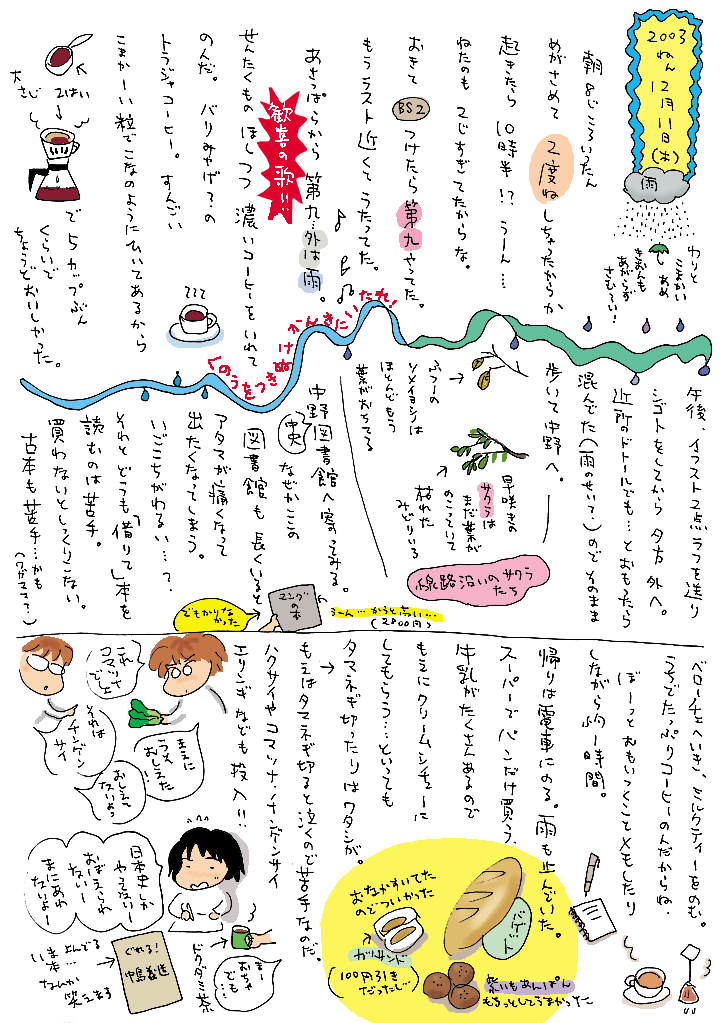 2003
ねん
12月11日
(木)
雨
わりと
こまかい
あめ
きおんも
あがらず
さむてい!
朝8じごろいったん
めがさめて
2度ねしちゃったからか
起きたら10時半!?うーん…
ねたのも2じすぎてたからな。
おきてBS2つけたら第九やってた。
もうラスト近くてうたってた。
あさっぱらから第九…外は雨。
歓喜の歌!!
かんきにいたれ!
くのうをつきぬけ
せんたくものほしつつ濃いコーヒーをいれて
のんだ。バリみやげ?の
トラジャコーヒー。すんごい
こまかーい粒でこなのようにひいてあるから
大さじ2はい
で5カップぶん
くらいで
ちょうどおいしかった。
午後、イラスト2点ラフを送り
シゴトをしてから夕方外へ。
近所のドトールでも…とおもったら
混んでた(雨のせい?…)のでそのまま
歩いて中野へ。
ふつーの
ソメイヨシノは
ほとんどもう
葉がおちてる
早咲きの
サクラは
まだ葉が
のこっていて
枯れた
みどりいろ
線路沿いのサクラ
たち
中野図書館へ寄ってみる。
中央
なぜかこの
図書館も長くいると
アタマが痛くなって
出たくなってしまう。
いごこちがわるい…?
それとどうも「借りて」本を
読むのは苦手。
買わないとしっくりこない。
古本も苦手…かも
(ワガママ?)
マンガ
の本
うーん…かうと高い…
(2800円)
でもかりな
かった
ベローチェへいき、ミルクティーをのむ。
うちでたっぷりコーヒーのんだからね。
ぼーっとおもいつくことメモしたり
しながら約1時間。
帰りは電車にのる。雨も止んでいた。
スーパーでパンだけ買う。
牛乳がたくさんあるので
もえにクリームシチューに
してもらう…といっても
タマネギ切ったりはワタシが。
もえはタマネギ切ると泣くので苦手なのだ。
ハクサイやコマツナ、チンゲンサイ
エリンギなども投入!!
バゲット
おなかすいてた
のでついかった
ガルサンド
(100円引き
だったし…)
紫いもあんぱん
もちっとしてうまかった
これ
コマツナ
でしょ
それは
チンゲン
サイ
まえに
ラメ
おしえた
…!
おしえて
ないよう
日本史しか
やえない
おぼえられ
ないー!
まにあわ
ないよー
まー
おちゃ
でも…
ドクダミ茶
ぐれる!
中島義道
いまよんでる
本
なんか
笑えます